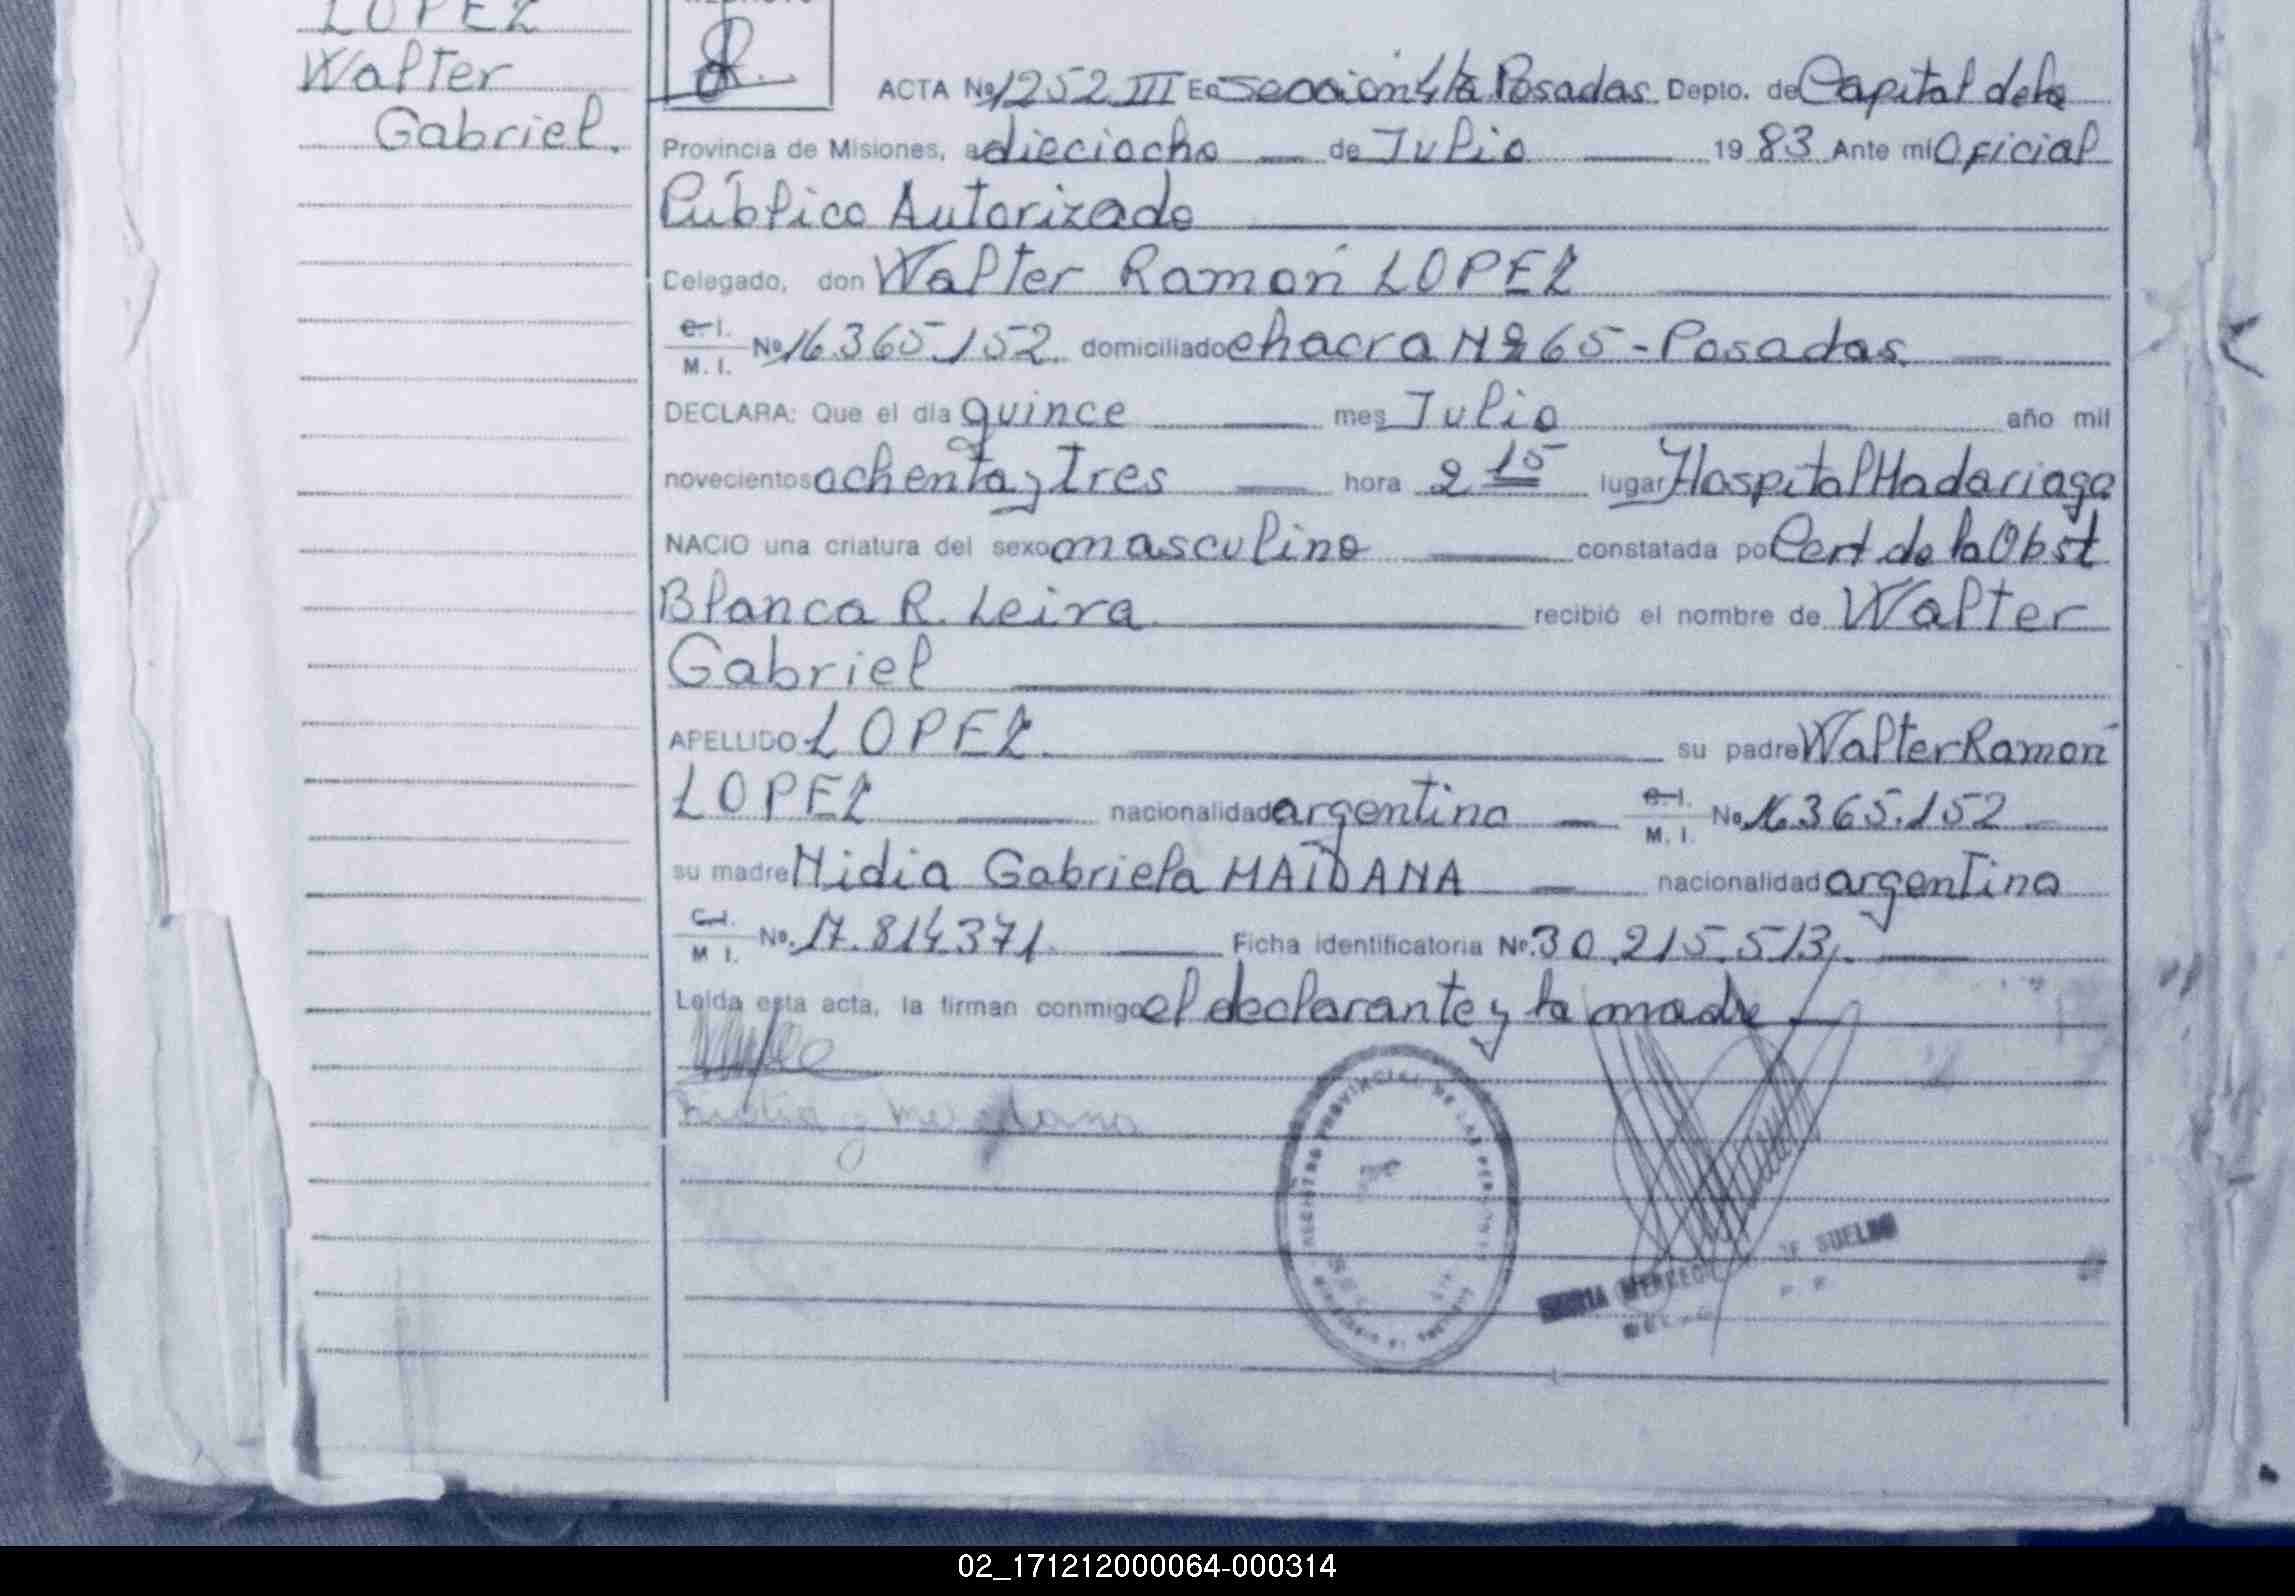 LOPEZ
Walter
Gabriel.
ACTA Nº 1252 III En Sección 4ta Posadas Depto. de Capital de la
Provincia de Misiones, a dieciocho de Julio 1983 Ante mi Oficial
Público Autorizado
Delegado, don Walter Ramón LOPEZ
C.I. M.I. Nº 16.365.152 domiciliado chacra Nº 65 - Posadas.
DECLARA: Que el día quince mes Julio año mil
novecientos ochenta y tres hora 2 15 lugar Hospital Madariaga
NACIO una criatura del sexo masculino constatada por Cert. de la Obst
Blanca R. Leira recibió el nombre de Walter
Gabriel
APELLIDO LOPEZ. su padre Walter Ramón
LOPEZ nacionalidad argentino C.I. M.I. Nº 16.365.152
su madre Nidia Gabriela MAIDANA nacionalidad argentina
C.I. M.I. Nº. 17.814.371. Ficha identificatoria Nº. 30.215.513.
Leída esta acta, la firman conmigo el declarante y la madre
REGISTRO PROVINCIAL DE LAS PERSONAS
DE SUELDO
02_171212000064-000314